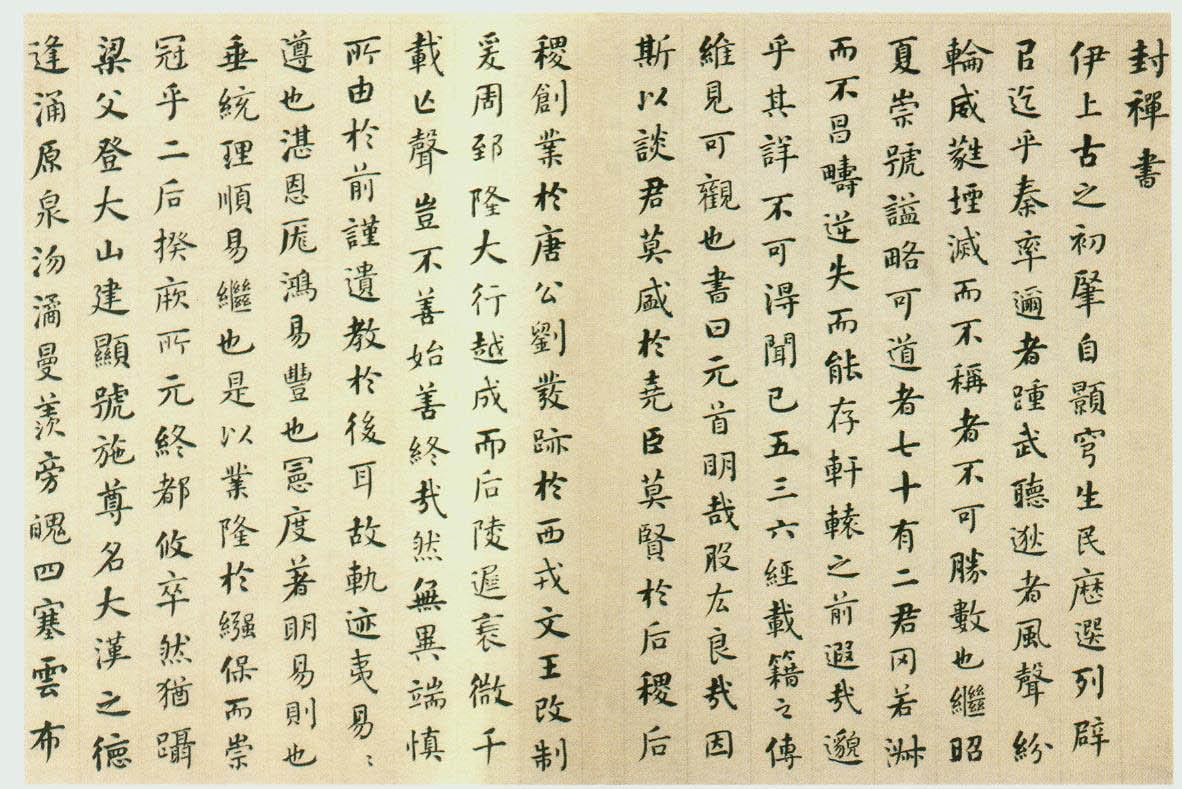 封禪書
伊上古之初肇自顥穹生民歷選列辟
㠯迄乎秦率邇者踵武聽逖者風聲紛
輪威蕤堙滅而不稱者不可勝數也繼昭
夏崇號謚略可道者七十有二君罔若淑
而不昌疇逆失而能存軒轅之前遐哉邈
乎其詳不可得聞已五三六經載籍之傳
維見可觀也書曰元首明哉股厷良哉因
斯以談君莫盛於堯臣莫賢於后稷后
稷創業於唐公劉發跡於西戎文王改制
爰周郅隆大行越成而后陵遲衰微千
載亾聲豈不善始善終哉然無異端慎
所由於前謹遺教於後耳故軌迹夷易〻
遵也湛恩厖鴻易豐也憲度著明易則也
垂統理順易繼也是以業隆於繈保而崇
冠乎二后揆厥所元終都攸卒然猶躡
梁父登大山建顯號施尊名大漢之德
逢涌原泉沕潏曼羨旁魄四塞雲布